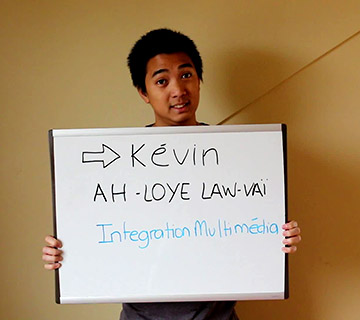 ⇨ Kévin
AH-LOYE LAW-VAÏ
Integration Multimédia